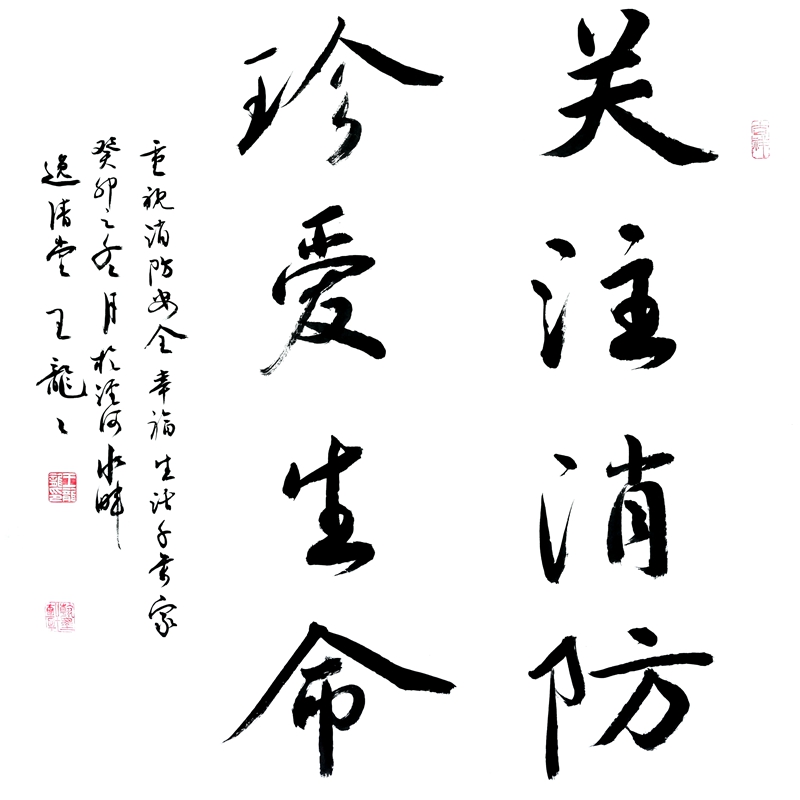 关注消防
珍爱生命
重视消防安全幸福生活千万家
癸卯之冬月于泾河水畔
逸清堂王龙龙